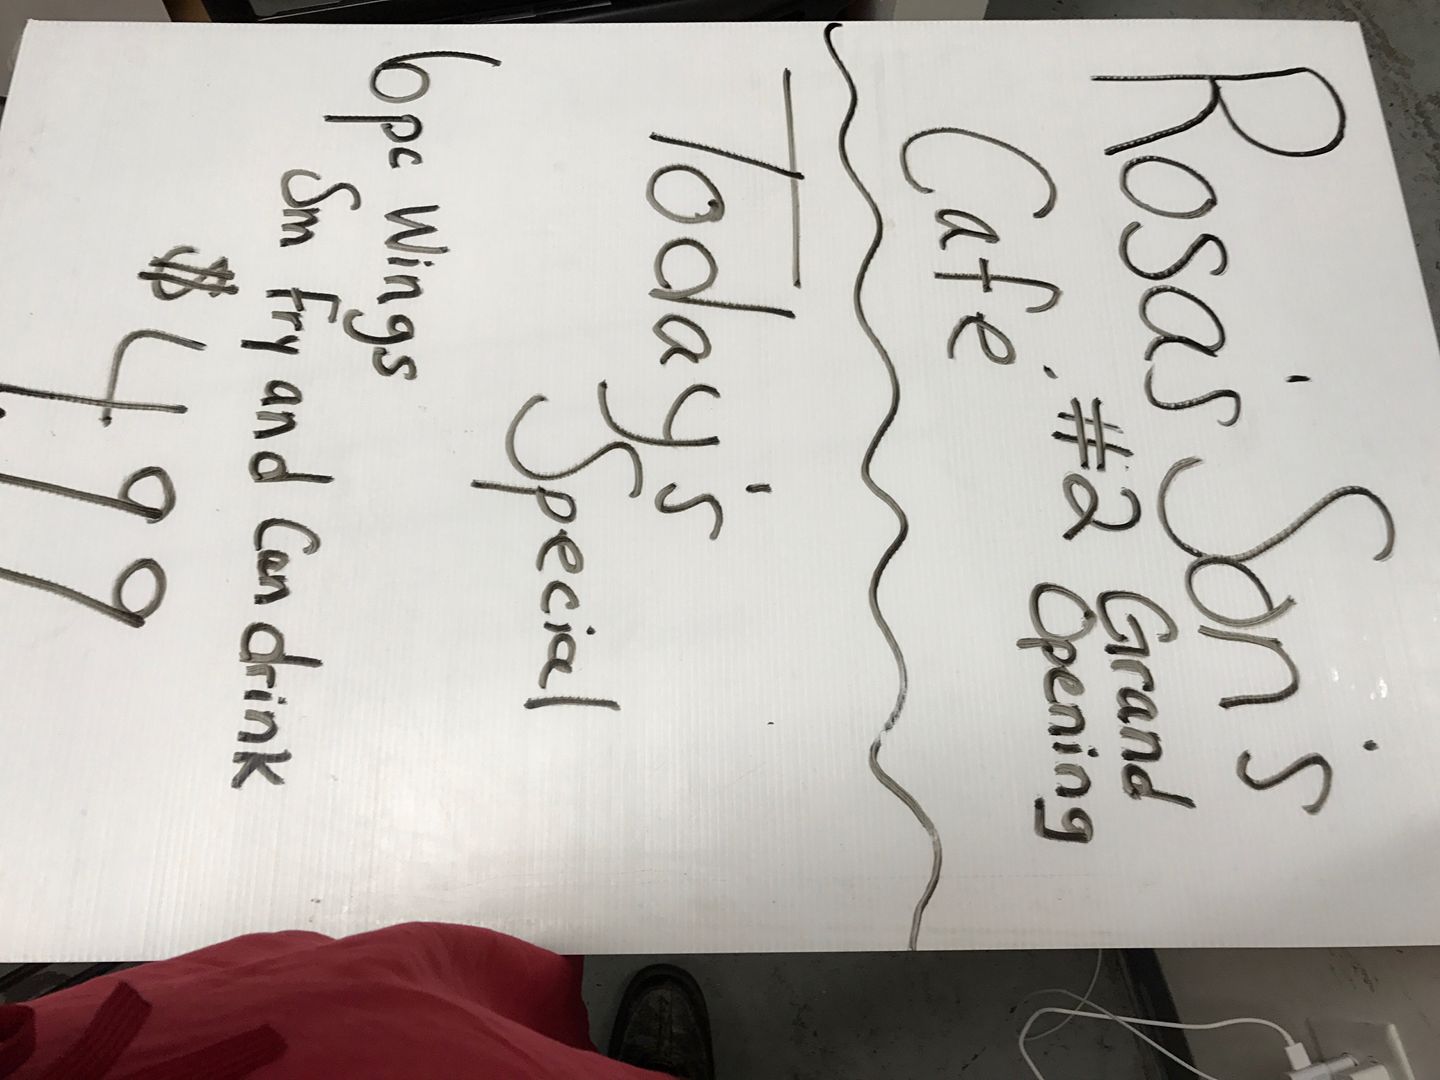 Rosa's Son's
Cafe. #2 Grand
Opening
Today's
Special
6pc Wings
Sm Fry and Can drink
$4.99